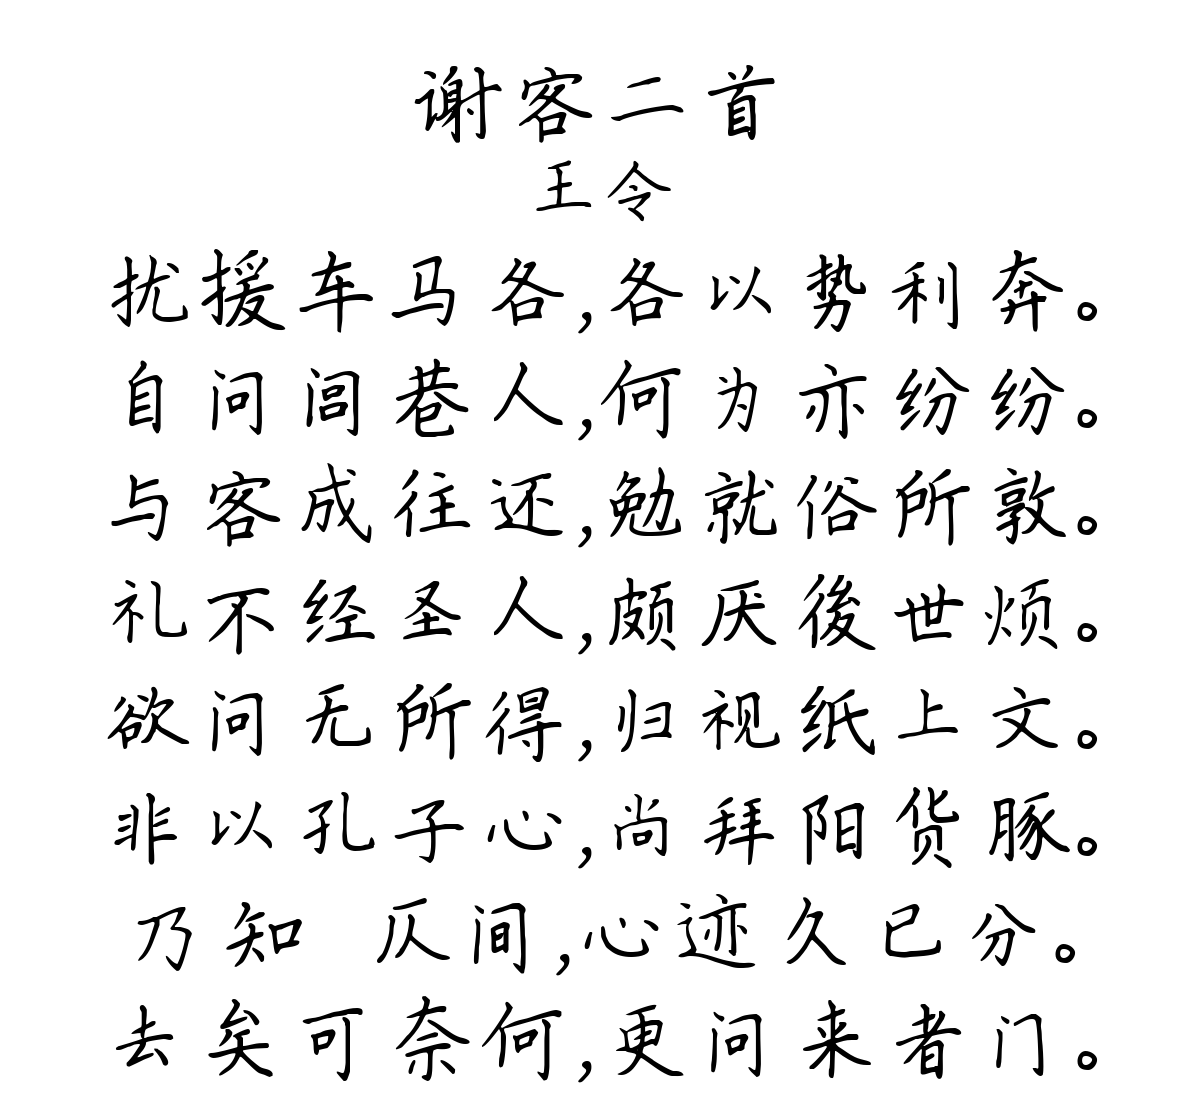 谢客二首
王令
扰援车马各,各以势利奔。
自问闾巷人,何为亦纷纷。
与客成往还,勉就俗所敦。
礼不经圣人,颇厌後世烦。
欲问无所得,归视纸上文。
非以孔子心,尚拜阳货豚。
乃知 仄间,心迹久已分。
去矣可奈何,更问来者门。